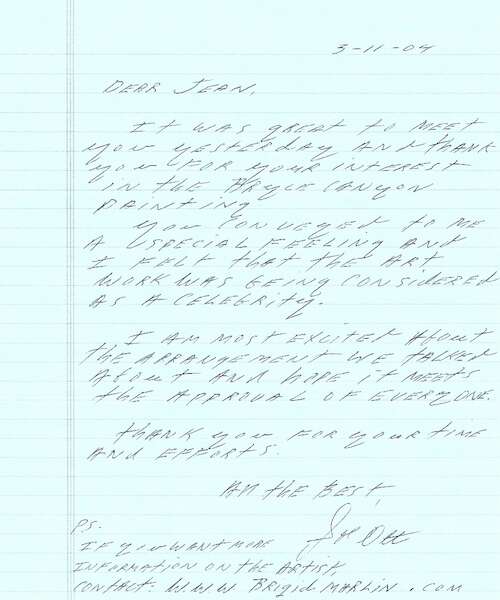 3-11-04
DEAR JEAN,
IT WAS GREAT TO MEET
YOU YESTERDAY AND THANK
YOU FOR YOUR INTEREST
IN THE BRYCE CANYON
PAINTING
YOU CONVEYED TO ME
A SPECIAL FEELING AND
I FELT THAT THE ART
WORK WAS BEING CONSIDERED
AS A CELEBRITY.
I AM MOST EXCITED ABOUT
THE ARRANGEMENT WE TALKED
ABOUT AND HOPE IT MEETS
THE APPROVAL OF EVERYONE.
THANK YOU FOR YOUR TIME
AND EFFORTS.
ALL THE BEST,
P.S.
IF YOU WANT MORE
INFORMATION ON THE ARTIST
CONTACT: W.W.W BRIGIDMARLIN.COM